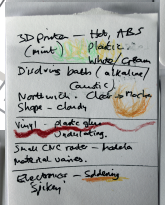 3D Printer – Hot, ABS
(mint) Plastic.
White/Cream
Disolving bath (alkaline/
(caustic)
Northwich. Close to Mocha
Shape - cloudy
Vinyl - plastic glue
Undulating.
Small CNC router -
Material varies.
Electronics - Soldering
Spikey